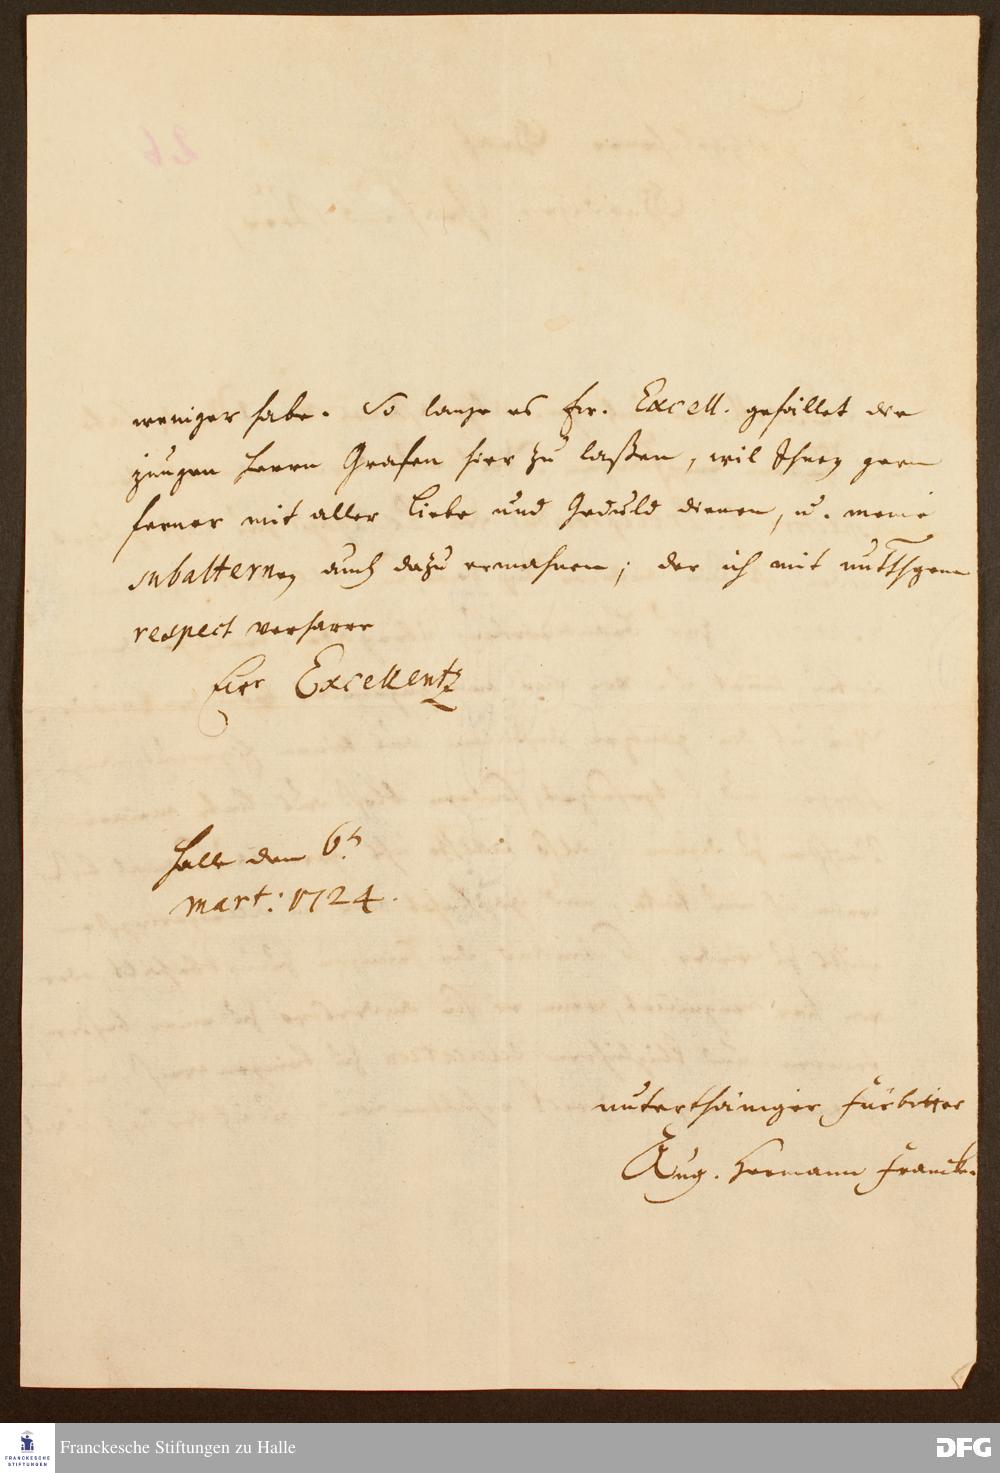 weniger habe. So lange es Ew. Excell. gefället den
jungen Herrn Grafen hier zu laßen, wil Ihnen gern
ferner mit aller Liebe und Gedult dienen, u. meine
subalternen auch dazu ermahnen; der ich mit
respect verharre
Eurer Excellentz
Halle den 6t
Mart: 1724.
unterthäniger Fürbitter
Aug. Hermann Francke.
Franckesche Stiftungen zu Halle
FRANCKESCHE
STIFTUNGEN
DFG